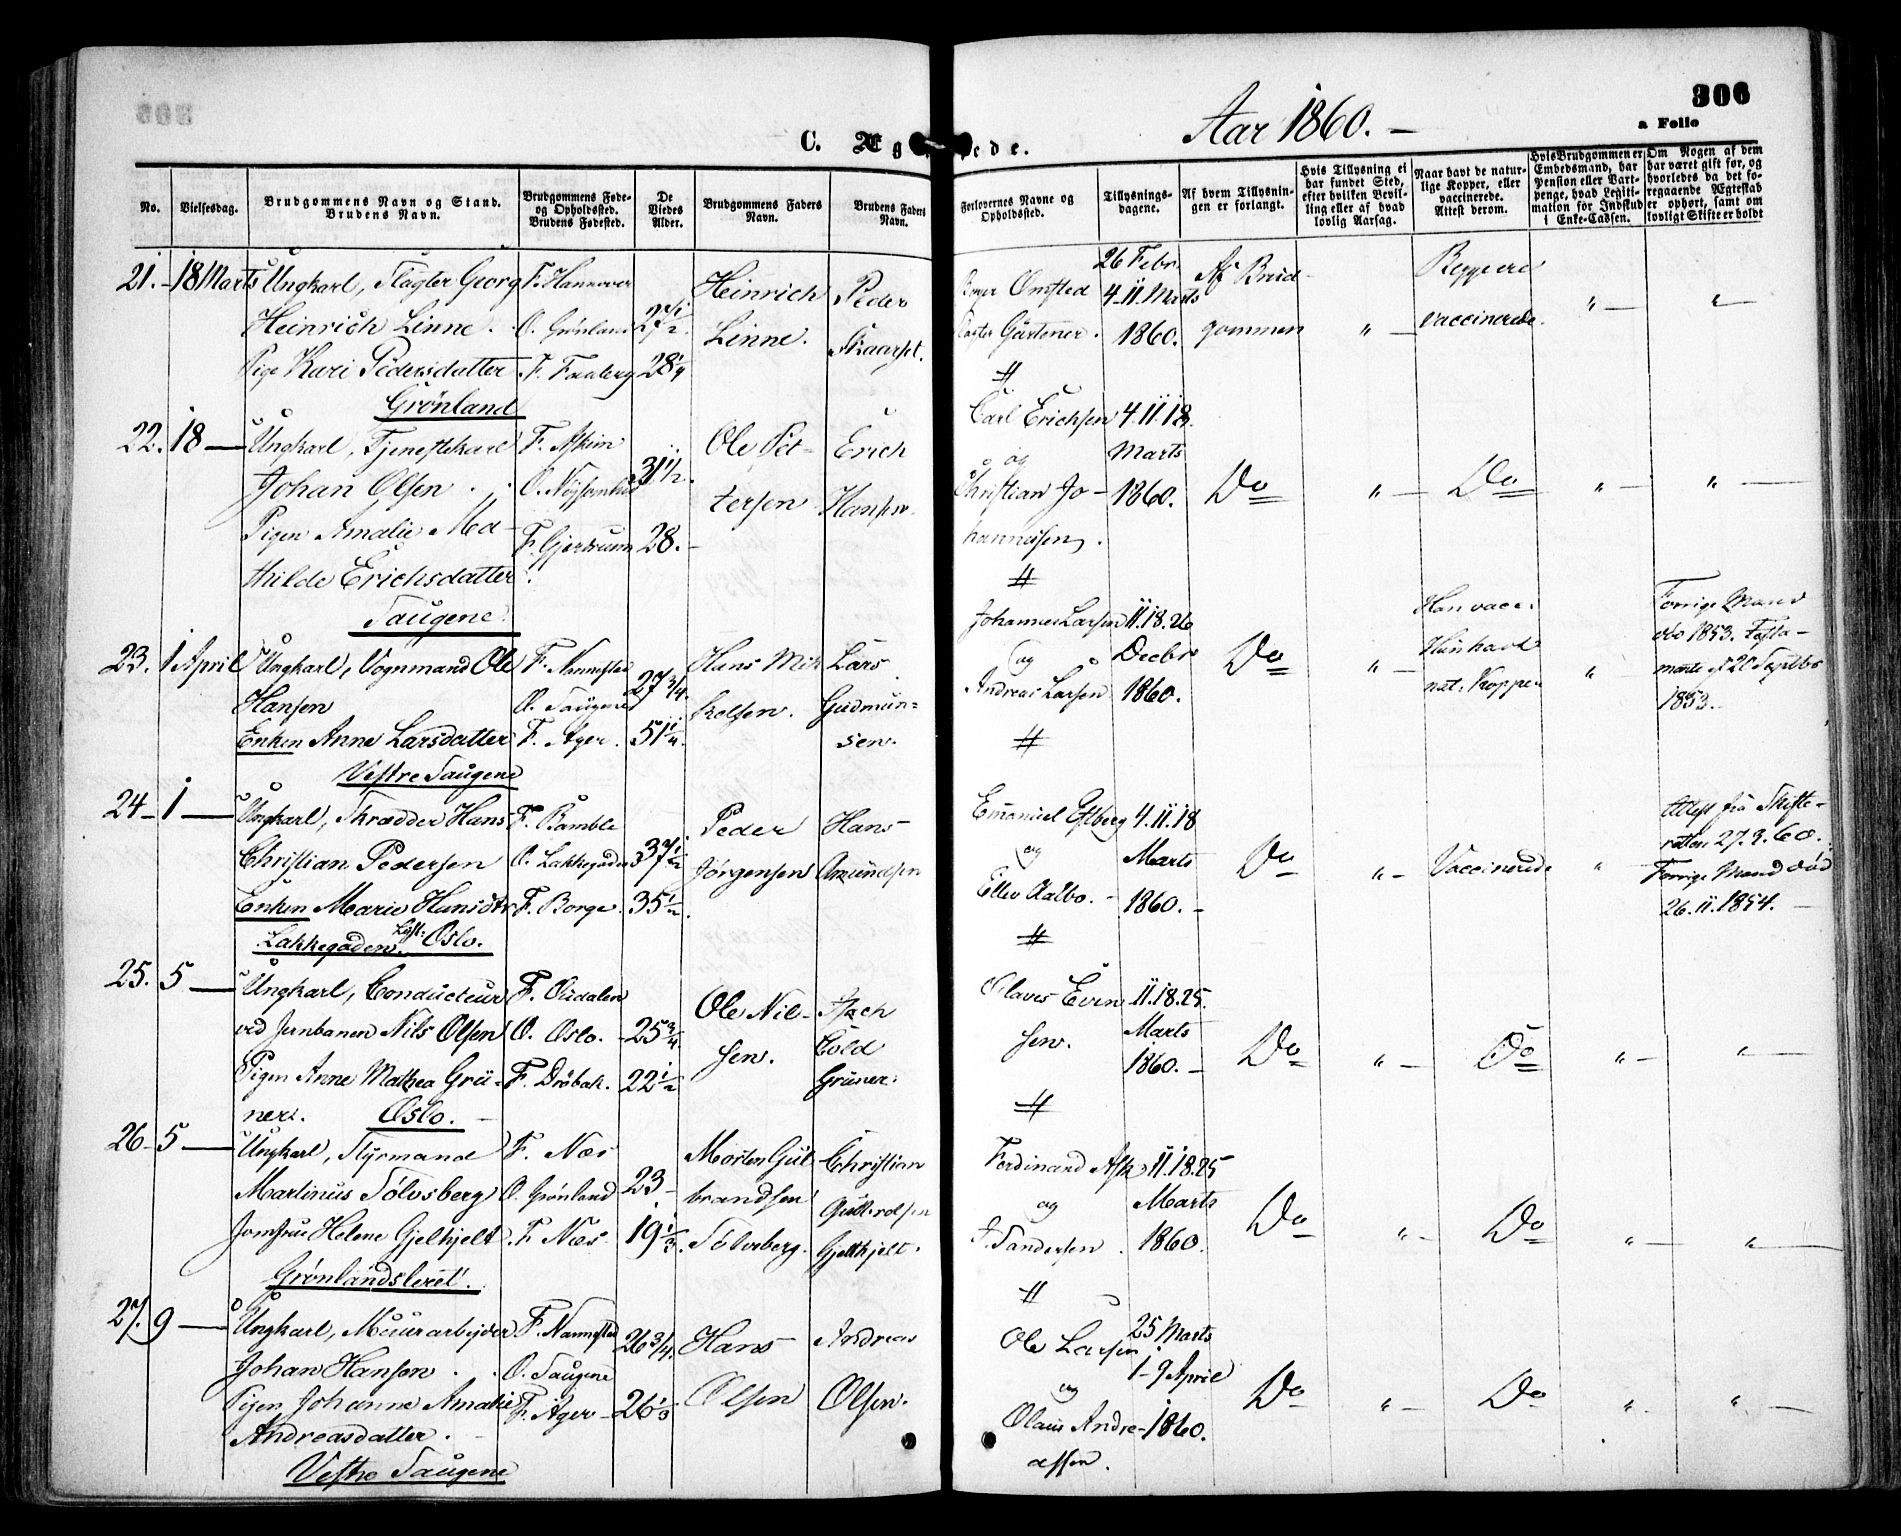 306
Aar 1860. —
a Folio
C. Æg ede.
No.
Vielsesdag.
Brudgommens Navn og Stand.
Brudens Navn.
Brudgommens Føde-
og Opholdssted.
Brudens Fødested.
De
Viedes
Alder.
Brudgommens Faders
Navn.
Brudens Faders
Navn.
Forlovernes Navne og
Opholdssted.
Tillysnings-
dagene.
Af hvem Tillysnin-
gen er forlangt.
Hvis Tillysning ei
har fundet Sted,
efter hvilken Bevil-
ling eller af hvad
lovlig Aarsag.
Naar havt de natur-
lige Kopper, eller
vaccinerede.
Attest derom.
Hvis Brudgommen er
Embedsmand, har
Pension eller Vart-
penge, hvad Legiti-
mation for Indskud
i Enke-Cassen.
Om Nogen af dem
har været gift før, og
hvorledes da det fo-
regaaende Ægteskab
er ophørt, samt om
lovligt Skifte er holdt
21. 18 Marts Ungkarl, Slagter Georg F. Hannover
Heinrich Linne. O. Grønland 27 1/2
Pige Kari Pedersdatter F. Faaberg 28 1/4
Grønland
Heinrich
Linne.
Peder
Skaarset.
Omsted
Gartener.
26 Febr.
4-11. Marts
1860.
Af Brud-
gommen
"
Begge ere
vaccinerede.
" —
" —
22. 18 — Ungkarl, Tjenestekarl F. Askim
Johan Olsen O. 31 1/2.
Pigen Amalie Ma-
thilde Erichsdatter F. Gjerdrum 28. —
Saugene
Ole Pet-
tersen
Erich
Hansen
Carl Erichsen
og
Christian Jo-
hannessen.
4. 11. 18.
Marts
1860.
Do
" —
Do
" —
" —
23. 1 April Ungkarl, Vognmand Ole F. Nannestad
Hansen O. Saugene 27 3/4.
Enken Anne Larsdatter F. Ager. 51 1/4.
Vestre Saugene
Hans Mik-
kelsen.
Lars
Gudmun-
sen.
Johannes Larsen
og
Andreas Larsen
11. 18. 26
Decbr
1860.
Do
" —
Han vacc.
Hun havt
nat. Kopper
"
Forrige Mand
død 1853. Testa-
mente af 20 Septbr
1853.
24 — 1 — Ungkarl, Skrædder Hans F. Bamble
Christian Pedersen O. Lakkegaden 37 1/2
Enken Marie Hansdtr F. Borge. 35 1/2.
Lakkegaden. Oslo.
Peder
Jørgensen
Hans
Amundsen
Emanuel Estberg
og
Ellev Aalbo. —
4. 11. 18
Marts
1860. —
Do
" —
Vaccinerede
"
Attest fra Skifte-
retten 27. 3. 60.
Forrige Mand død
26. 11. 1854. —
25. 5 — Ungkarl, Conducteur F. Oudalen
ved Jernbanen Nils Olsen O. Oslo. 25 3/4.
Pigen Anne Mathea Grü-
ner. F. Drøbak. 22 1/2
Oslo. —
Ole Nil-
sen.
Isach
Cold
Grüner.
Olaves Even
sen.
11. 18. 25.
Marts
1860. —
Do
" —
Do
" —
" —
26 — 5 — Ungkarl, Styrmand F. Næs
Martinus Sølvsberg O. Grønland 23 —
Jomfrue Helene Gjelhjelt F. Næs 19 1/3.
Grønlandsleret.
Morten Gul-
brandsen
Sølvsberg.
Christian
Gjelhjelt.
Ferdinand Ask
og
Sandersen.
11. 18. 25
Marts
1860.
Do
" —
Do
" —
" —
27. 9 — Ungkarl, Muurarbejder F. Nannestad
Johan Hansen. O. Saugene 26 3/4.
Pigen Johanne Amalie F. Ager — 26 1/3
Andreasdatter. —
Vestre Saugene
Hans
Olsen
Andreas
Olsen.
Ole Larsen
og
Olaus Andre-
assen.
25 Marts
1 - 9 April
1860.
Do
" —
Do
"
" —